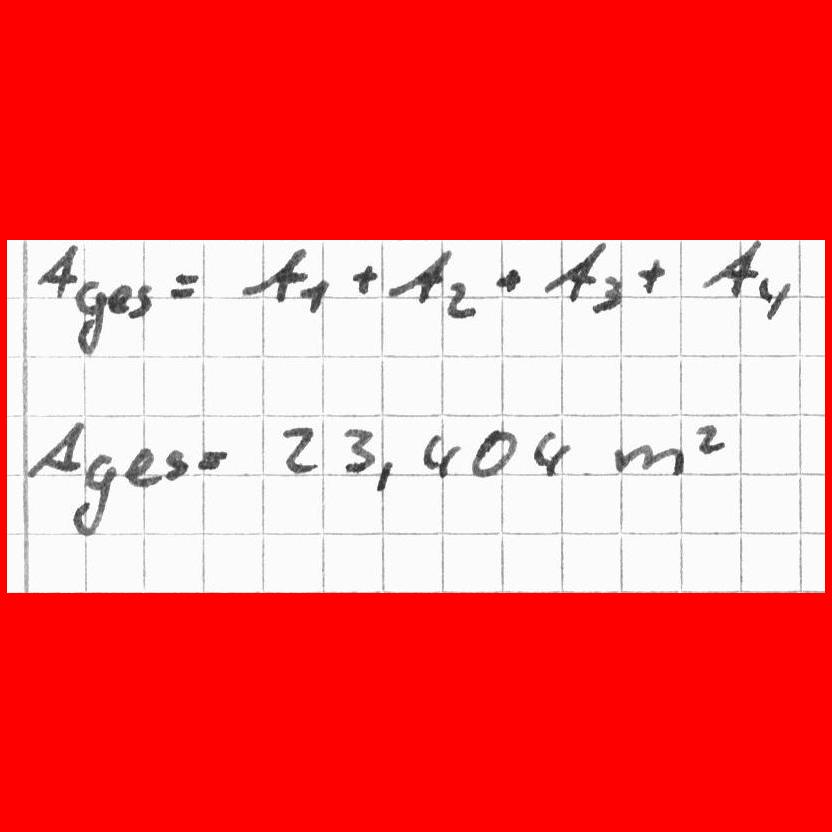 A_ges = A_1 + A_2 + A_3 + A_4
A_ges = 23,404 m²